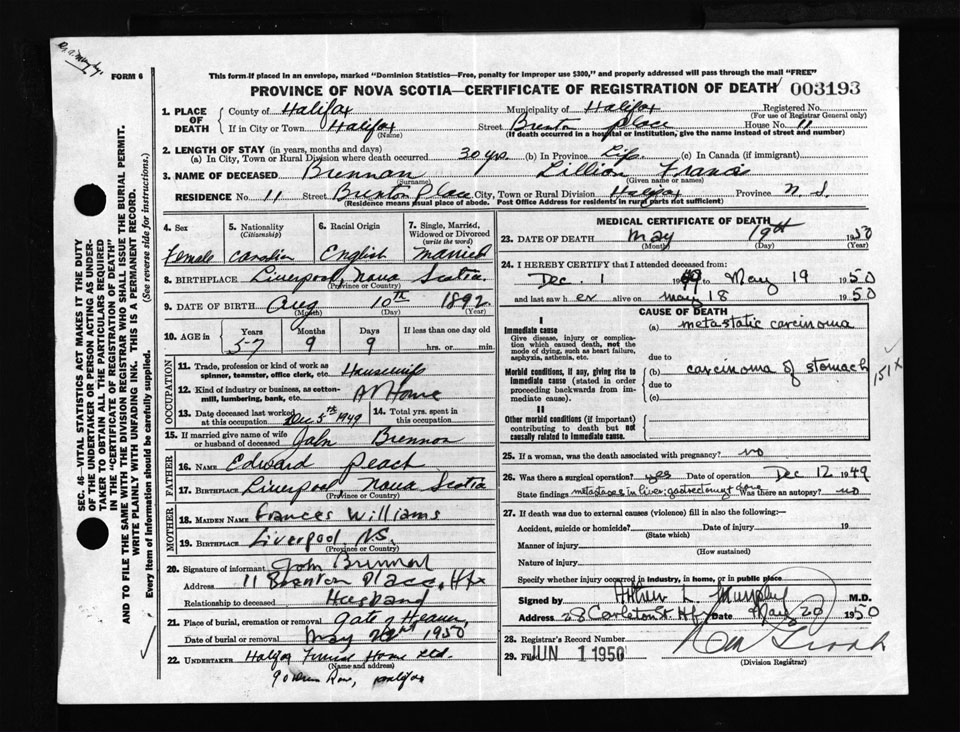 FORM 6
This form if placed in an envelope, marked "Dominion Statistics—Free, penalty for improper use $300," and properly addressed will pass through the mail "FREE"
PROVINCE OF NOVA SCOTIA—CERTIFICATE OF REGISTRATION OF DEATH 003193
SEC. 46—VITAL STATISTICS ACT MAKES IT THE DUTY
OF THE UNDERTAKER OR PERSON ACTING AS UNDER-
TAKER TO OBTAIN ALL THE PARTICULARS REQUIRED
IN THE "CERTIFICATE OF REGISTRATION OF DEATH"
AND TO FILE THE SAME WITH THE DIVISION REGISTRAR WHO SHALL ISSUE THE BURIAL PERMIT.
WRITE PLAINLY WITH UNFADING INK. THIS IS A PERMANENT RECORD.
Every item of Information should be carefully supplied. (See reverse side for instructions.)
1. PLACE OF DEATH
County of Halifax Municipality of Halifax Registered No.
(For use of Registrar General only)
If in City or Town Halifax Street Brenton Place House No. 11
(Name) (If death occurred in a hospital or institution, give the name instead of street and number)
2. LENGTH OF STAY (in years, months and days)
(a) In City, Town or Rural Division where death occurred 30 yrs. (b) In Province Life (c) In Canada (if immigrant)
3. NAME OF DECEASED Brennan Lillian Francis
(Surname) (Given name or names)
RESIDENCE No. 11 Brenton Place City, Town or Rural Division Halifax Province N.S.
(Residence means usual place of abode. Post Office Address for residents in rural parts not sufficient)
4. Sex 5. Nationality (Citizenship) 6. Racial Origin 7. Single, Married, Widowed or Divorced (write the word)
Female Canadian English Married
8. BIRTHPLACE Liverpool, Nova Scotia
(Province or Country)
9. DATE OF BIRTH Aug 10th 1892
(Month) (Day) (Year)
10. AGE in Years Months Days If less than one day old
57 9 9 hrs. or min.
OCCUPATION
11. Trade, profession or kind of work as spinner, teamster, office clerk, etc. Housewife
12. Kind of industry or business, as cotton-mill, lumbering, bank, etc. At Home
13. Date deceased last worked at this occupation Dec 5th 1949 14. Total yrs. spent in this occupation
15. If married give name of wife or husband of deceased John Brennan
FATHER
16. NAME Edward Leach
17. BIRTHPLACE Liverpool Nova Scotia
(Province or Country)
MOTHER
18. MAIDEN NAME Frances Williams
19. BIRTHPLACE Liverpool, N.S.
(Province or Country)
20. Signature of informant John Brennan
Address 11 Brenton Place, Hfx
Relationship to deceased Husband
21. Place of burial, cremation or removal Gate of Heaven
Date of burial or removal May 1950
22. UNDERTAKER Halifax Funeral Home Ltd.
(Name and address)
Row, Halifax
MEDICAL CERTIFICATE OF DEATH
23. DATE OF DEATH May 19th 1950
(Month) (Day) (Year)
24. I HEREBY CERTIFY that I attended deceased from:
Dec. 1 1949 to May 19 1950
and last saw her alive on May 18 1950
CAUSE OF DEATH
I
Immediate cause
Give disease, injury or complication which caused death, not the mode of dying, such as heart failure, asphyxia, asthenia, etc.
(a) metastatic carcinoma
due to
Morbid conditions, if any, giving rise to immediate cause (stated in order proceeding backwards from immediate cause).
(b) carcinoma of stomach 151X
due to
(c)
II
Other morbid conditions (if important) contributing to death but not causally related to Immediate cause.
25. If a woman, was the death associated with pregnancy? no
26. Was there a surgical operation? yes Date of operation Dec 12 1949
State findings metastases in liver; gastrectomy done Was there an autopsy? no
27. If death was due to external causes (violence) fill in also the following:—
Accident, suicide or homicide? Date of injury 19
(State which)
Manner of injury
(How sustained)
Nature of injury
Specify whether injury occurred in industry, in home, or in public place
Signed by Arthur L. Murphy M.D.
Address 28 Carleton St. Hfx Date May 20 1950
28. Registrar's Record Number
29. Filed JUN 1 1950
(Division Registrar)